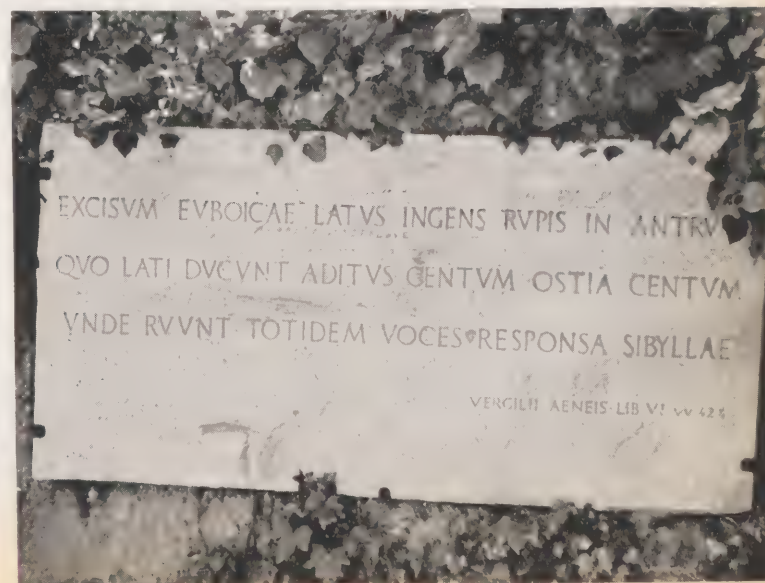 EXCISVM EVBOICAE LATVS INGENS RVPIS IN ANTRV
QVO LATI DVCVNT ADITVS CENTVM OSTIA CENTVM
VNDE RVVNT TOTIDEM VOCES RESPONSA SIBYLLAE
VERGILII AENEIS LIB VI VV